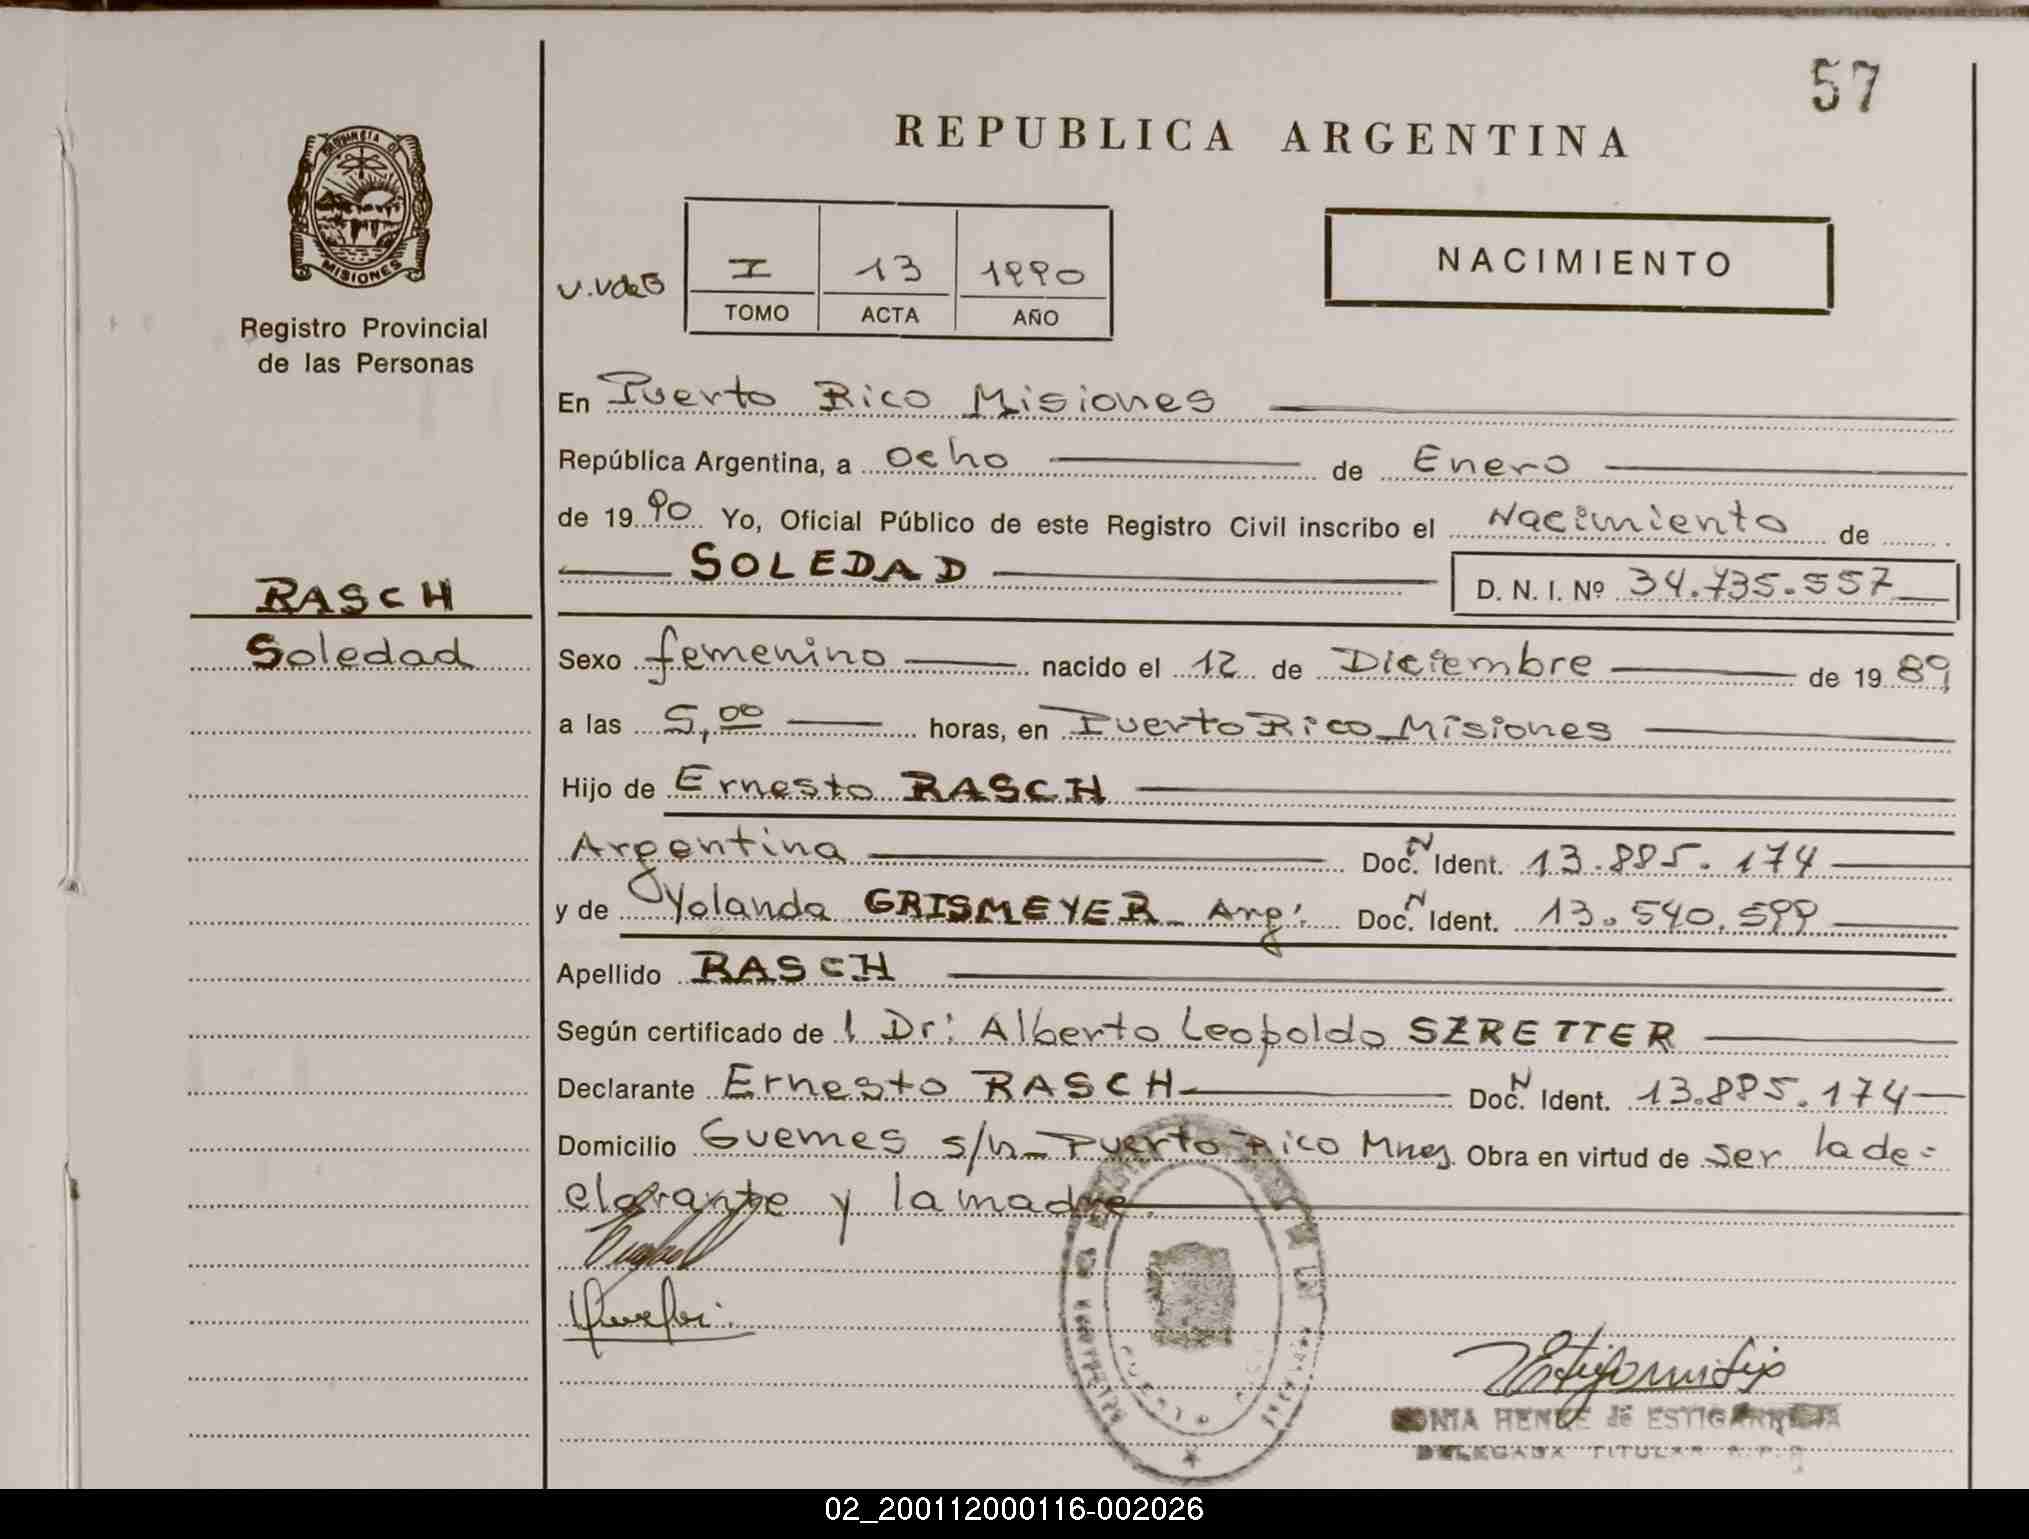 57
REPUBLICA ARGENTINA
PROVINCIA DE
MISIONES
Registro Provincial
de las Personas
V.VdeB
I 13 1990
TOMO ACTA AÑO
NACIMIENTO
En Puerto Rico Misiones
República Argentina, a ocho de Enero
de 1990 Yo, Oficial Público de este Registro Civil inscribo el Nacimiento de
SOLEDAD D. N. I. Nº 34.735.557
RASCH
Soledad
Sexo femenino nacido el 12 de Diciembre de 1989
a las 5,00 horas, en Puerto Rico Misiones
Hijo de Ernesto RASCH
Argentina Doc. N Ident. 13.885.174
y de Yolanda GRISMEYER - Arg. Doc. N Ident. 13.540.599
Apellido RASCH
Según certificado de l Dr: Alberto Leopoldo SZRETTER
Declarante Ernesto RASCH Doc. N Ident. 13.885.174
Domicilio Guemes s/n - Puerto Rico Mnes. Obra en virtud de ser la de=
clarante y la madre.
SONIA HENKE de ESTIGARRIBIA
DELEGADA TITULAR R.P.P
02_200112000116-002026